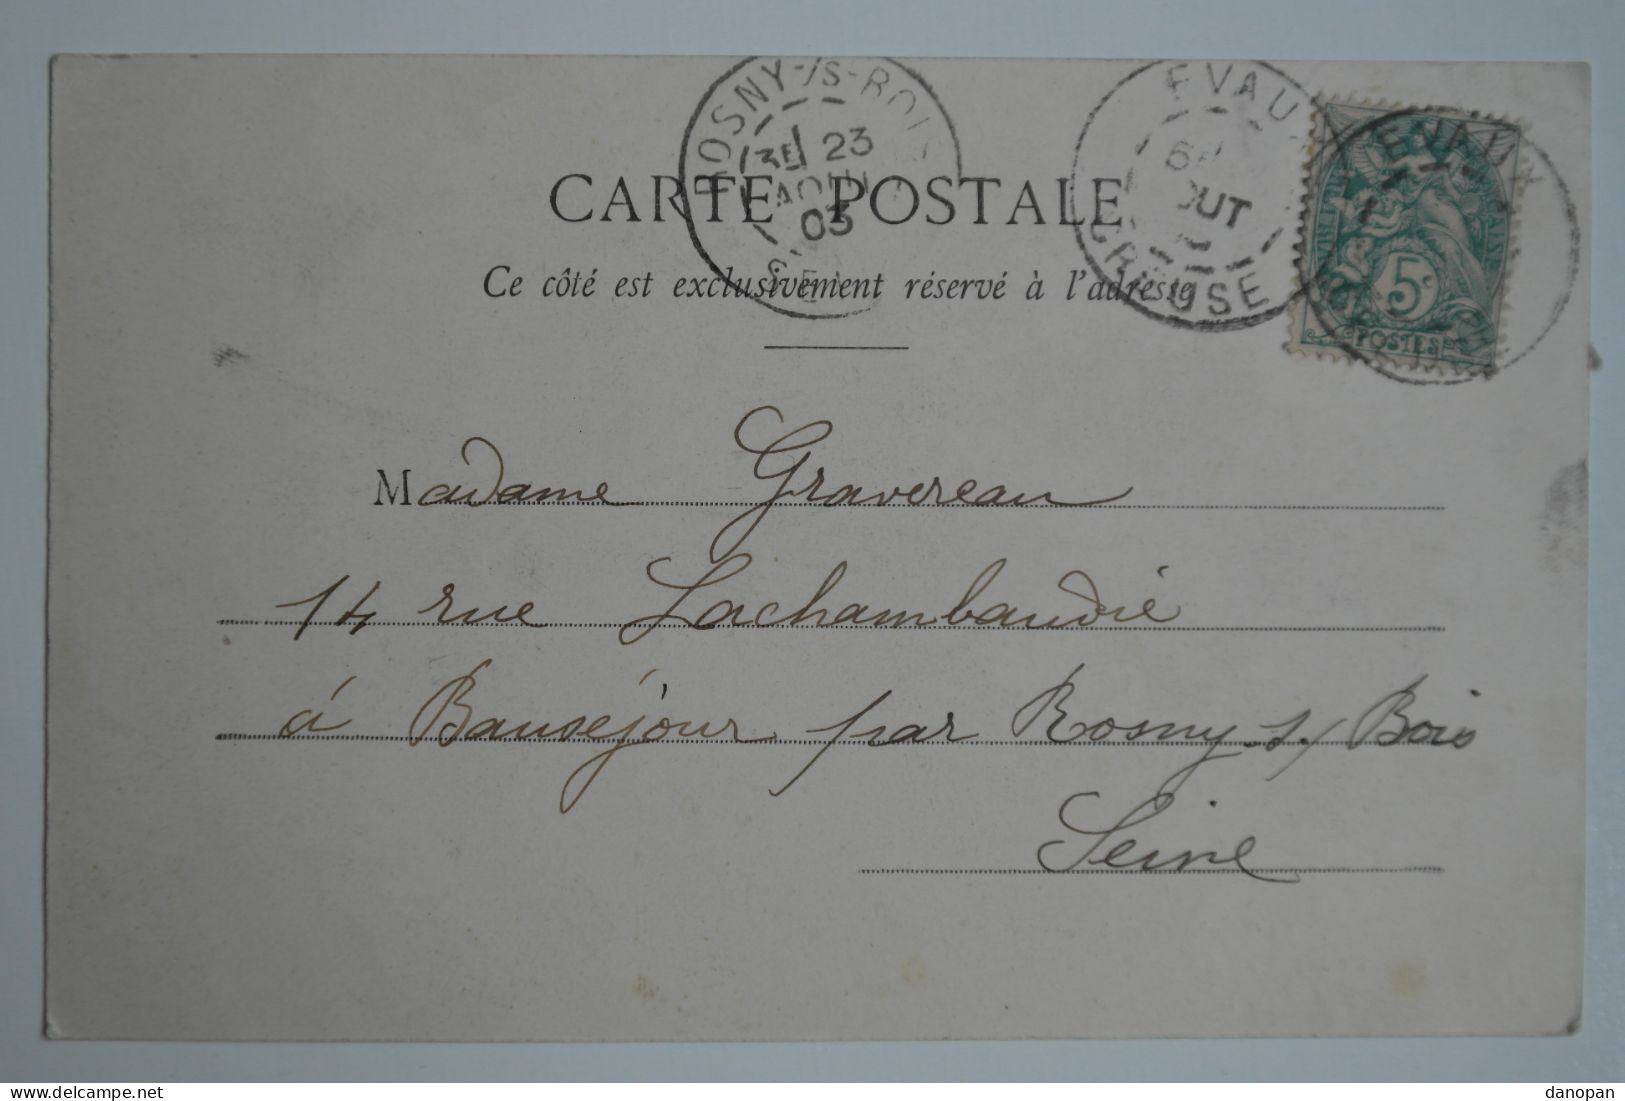 ROSNY-/S-BOIS
3E 23
AOUT
03
EVAUX
OUT
CREUSE
EVAUX
5c
POSTES
CARTE POSTALE
Ce côté est exclusivement réservé à l'adresse
Madame Gravereau
14 rue Lachambaudie
à Bauséjour par Rosny s/ Bois
Seine
delcampe.net
danopan